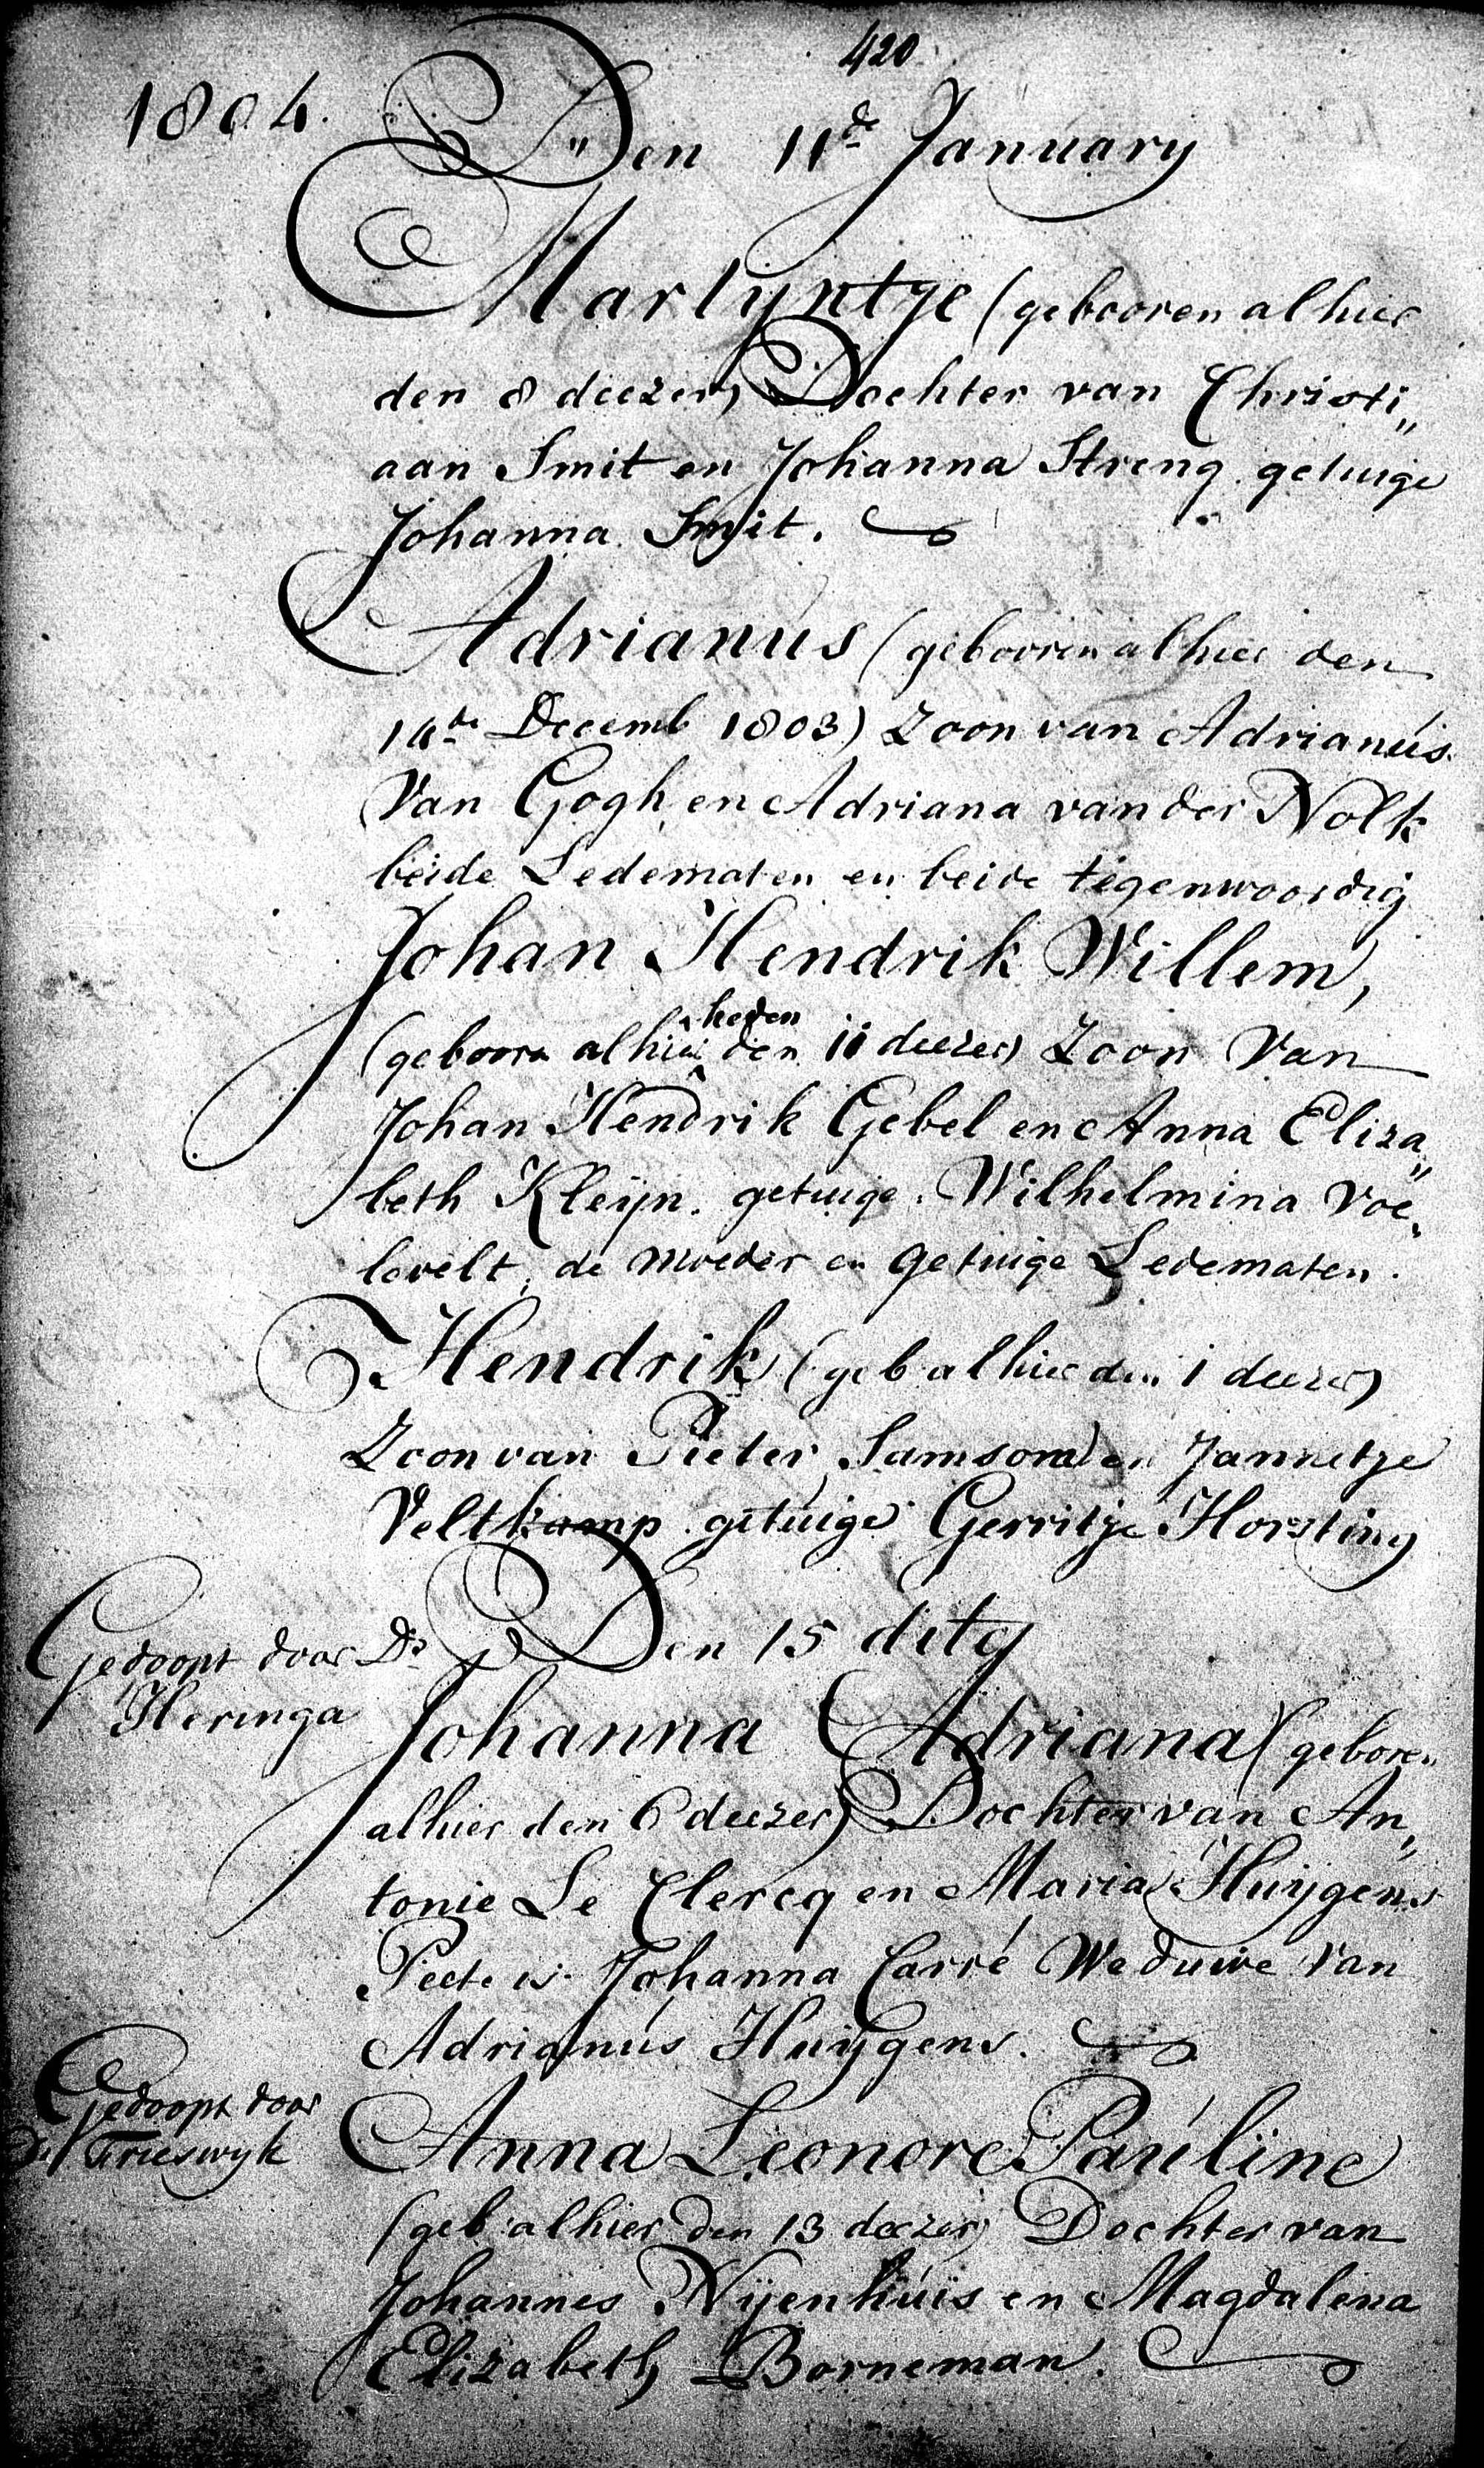 420
1804.
Den 11de January
Martyntge (gebooren alhier
den 8 deezer) Dochter van Christi„
aan Smit en Johanna Streng. getuige
Johanna Smit.
Adrianus (gebooren alhier den
14de Decemb 1803) Zoon van Adrianus
Van Gogh en Adriana van der Nolk
beide Ledematen en beide tegenwoordig
Johan Hendrik Willem,
heden
(geboorn alhier den 11 deezer) Zoon Van
Johan Hendrik Gebel en Anna Eliza„
beth Kleijn. getuige. Wilhelmina Voe„
levelt, de moeder en getuige Ledematen.
Hendrik (geb alhier den 1 deezer)
Zoon van Pieter Samsom en Jannetje
Veltkamp getuige Gerritje Horsting
Den 15 dito
Gedoopt door Ds
Heringa
Johanna Adriana (geboren
alhier den 6 deezer) Dochter van An„
tonie Le Clercq en Maria Huijgens
Peete is Johanna Carré Weduwe Van
Adrianus Huijgens.
Gedoopt door
Ds Frieswyk
Anna Leonore Pauline
(geb alhier den 13 deezer) Dochter van
Johannes Nijenhuis en Magdalena
Elizabeth Borneman.